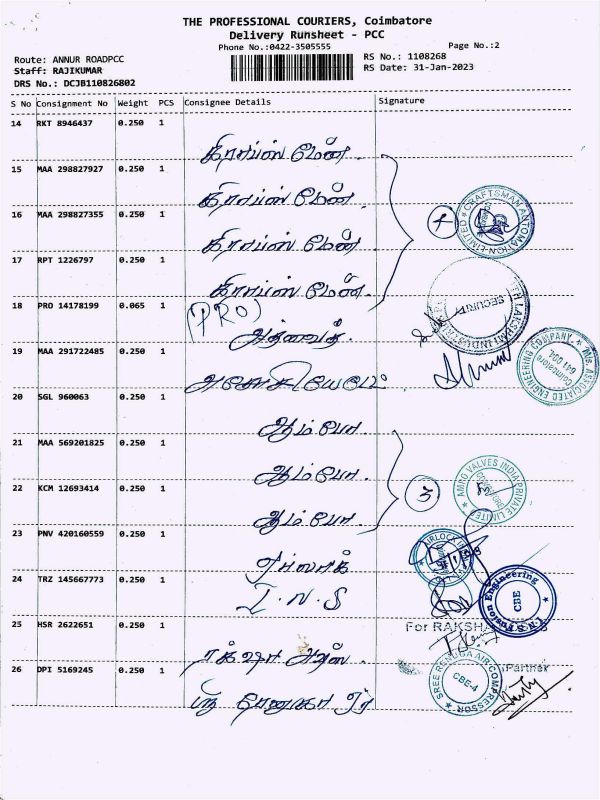 THE PROFESSIONAL COURIERS, Coimbatore
Delivery Runsheet - PCC
Phone No.:0422-3505555
Page No.:2
Route: ANNUR ROADPCC
RS No.: 1108268
Staff: RAJIKUMAR
RS Date: 31-Jan-2023
DRS No.: DCJB110826802
S No Consignment No Weight PCS Consignee Details Signature
14 RKT 8946437 0.250 1
கிராப்ஸ் மேன்
15 MAA 298827927 0.250 1
கிராப்ஸ் மேன்
16 MAA 298827355 0.250 1
கிராப்ஸ் மேன்
4
CRAFTSMAN AUTOMATION LIMITED
17 RPT 1226797 0.250 1
கிராப்ஸ் மேன்
18 PRO 14178199 0.065 1
(PRO)
LAKSHMI INDUS
SECURITY
19 MAA 291722485 0.250 1
M/s. ASSOCIATED ENGINEERING COMPANY
Coimbatore
641 004.
20 SGL 960063 0.250 1
ஆம்போ
21 MAA 569201825 0.250 1
ஆம்போ
22 KCM 12693414 0.250 1
ஆம்போ
3
AMPO VALVES INDIA PRIVATE LIMITED
COIMBATORE
23 PNV 420160559 0.250 1
ஏர்லாக்
AIRLOCK
24 TRZ 145667773 0.250 1
I.N.S
I.N.S Fusion Engineering
CBE
25 HSR 2622651 0.250 1
For RAKSHA
ரக்ஷா
26 DPI 5169245 0.250 1
Partner
SREE RENUGA AIR COMPRESSOR
CBE-4
ஸ்ரீ ரேணுகா ஏர்